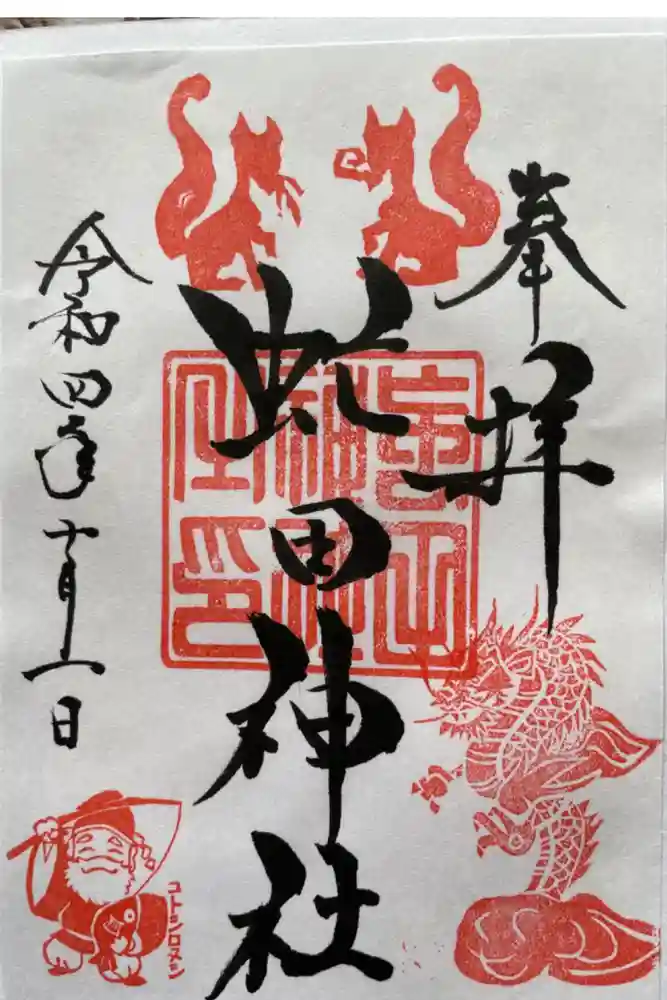 奉拝
虻田神社
令和四年十月十一日
コトシロヌシ